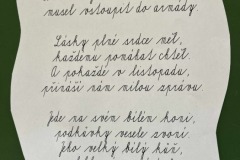 musel vstoupit do armády.
Lásky plné srdce měl,
každému pomáhat chtěl.
A pokaždé v listopadu,
přináší nám milou zprávu.
Jede na svém bílém koni,
podkůvky vesele zvoní.
Jeho velký bílý kůň,